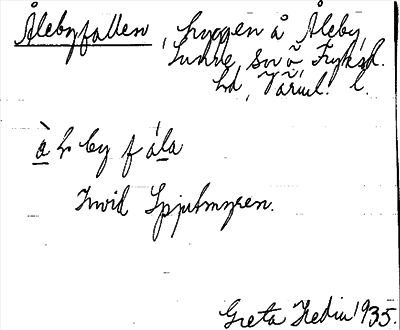 Ålebyfallen, hyggen å Åleby,
Sunne sn å, Fryksd.
hd, Värml. l.
å l by f ála
Invid Spjutmyren.
Greta Hedin 1935.